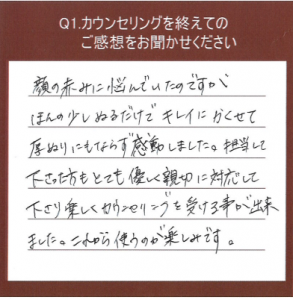 Q1.カウンセリングを終えての
ご感想をお聞かせください
顔の赤みに悩んでいたのですが
ほんの少しぬるだけでキレイにかくせて
厚ぬりにもならず感動しました。担当して
下さった方もとても優しく親切に対応して
下さり楽しくカウンセリングを受ける事が出来
ました。これから使うのが楽しみです。